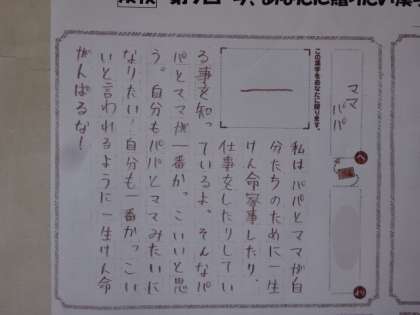 今、あなたに贈りたい漢
ママ
パパ
へ
より
この漢字をあなたに贈ります。
一
私はパパとママが自
分たちのために一生
けん命家事したり、
仕事をしたりしてい
る事を知っているよ。そんなパ
パとママが一番かっこいいと思
う。自分もパパとママみたいに
なりたい!自分も一番かっこい
いと言われるように一生けん命
がんばるな!